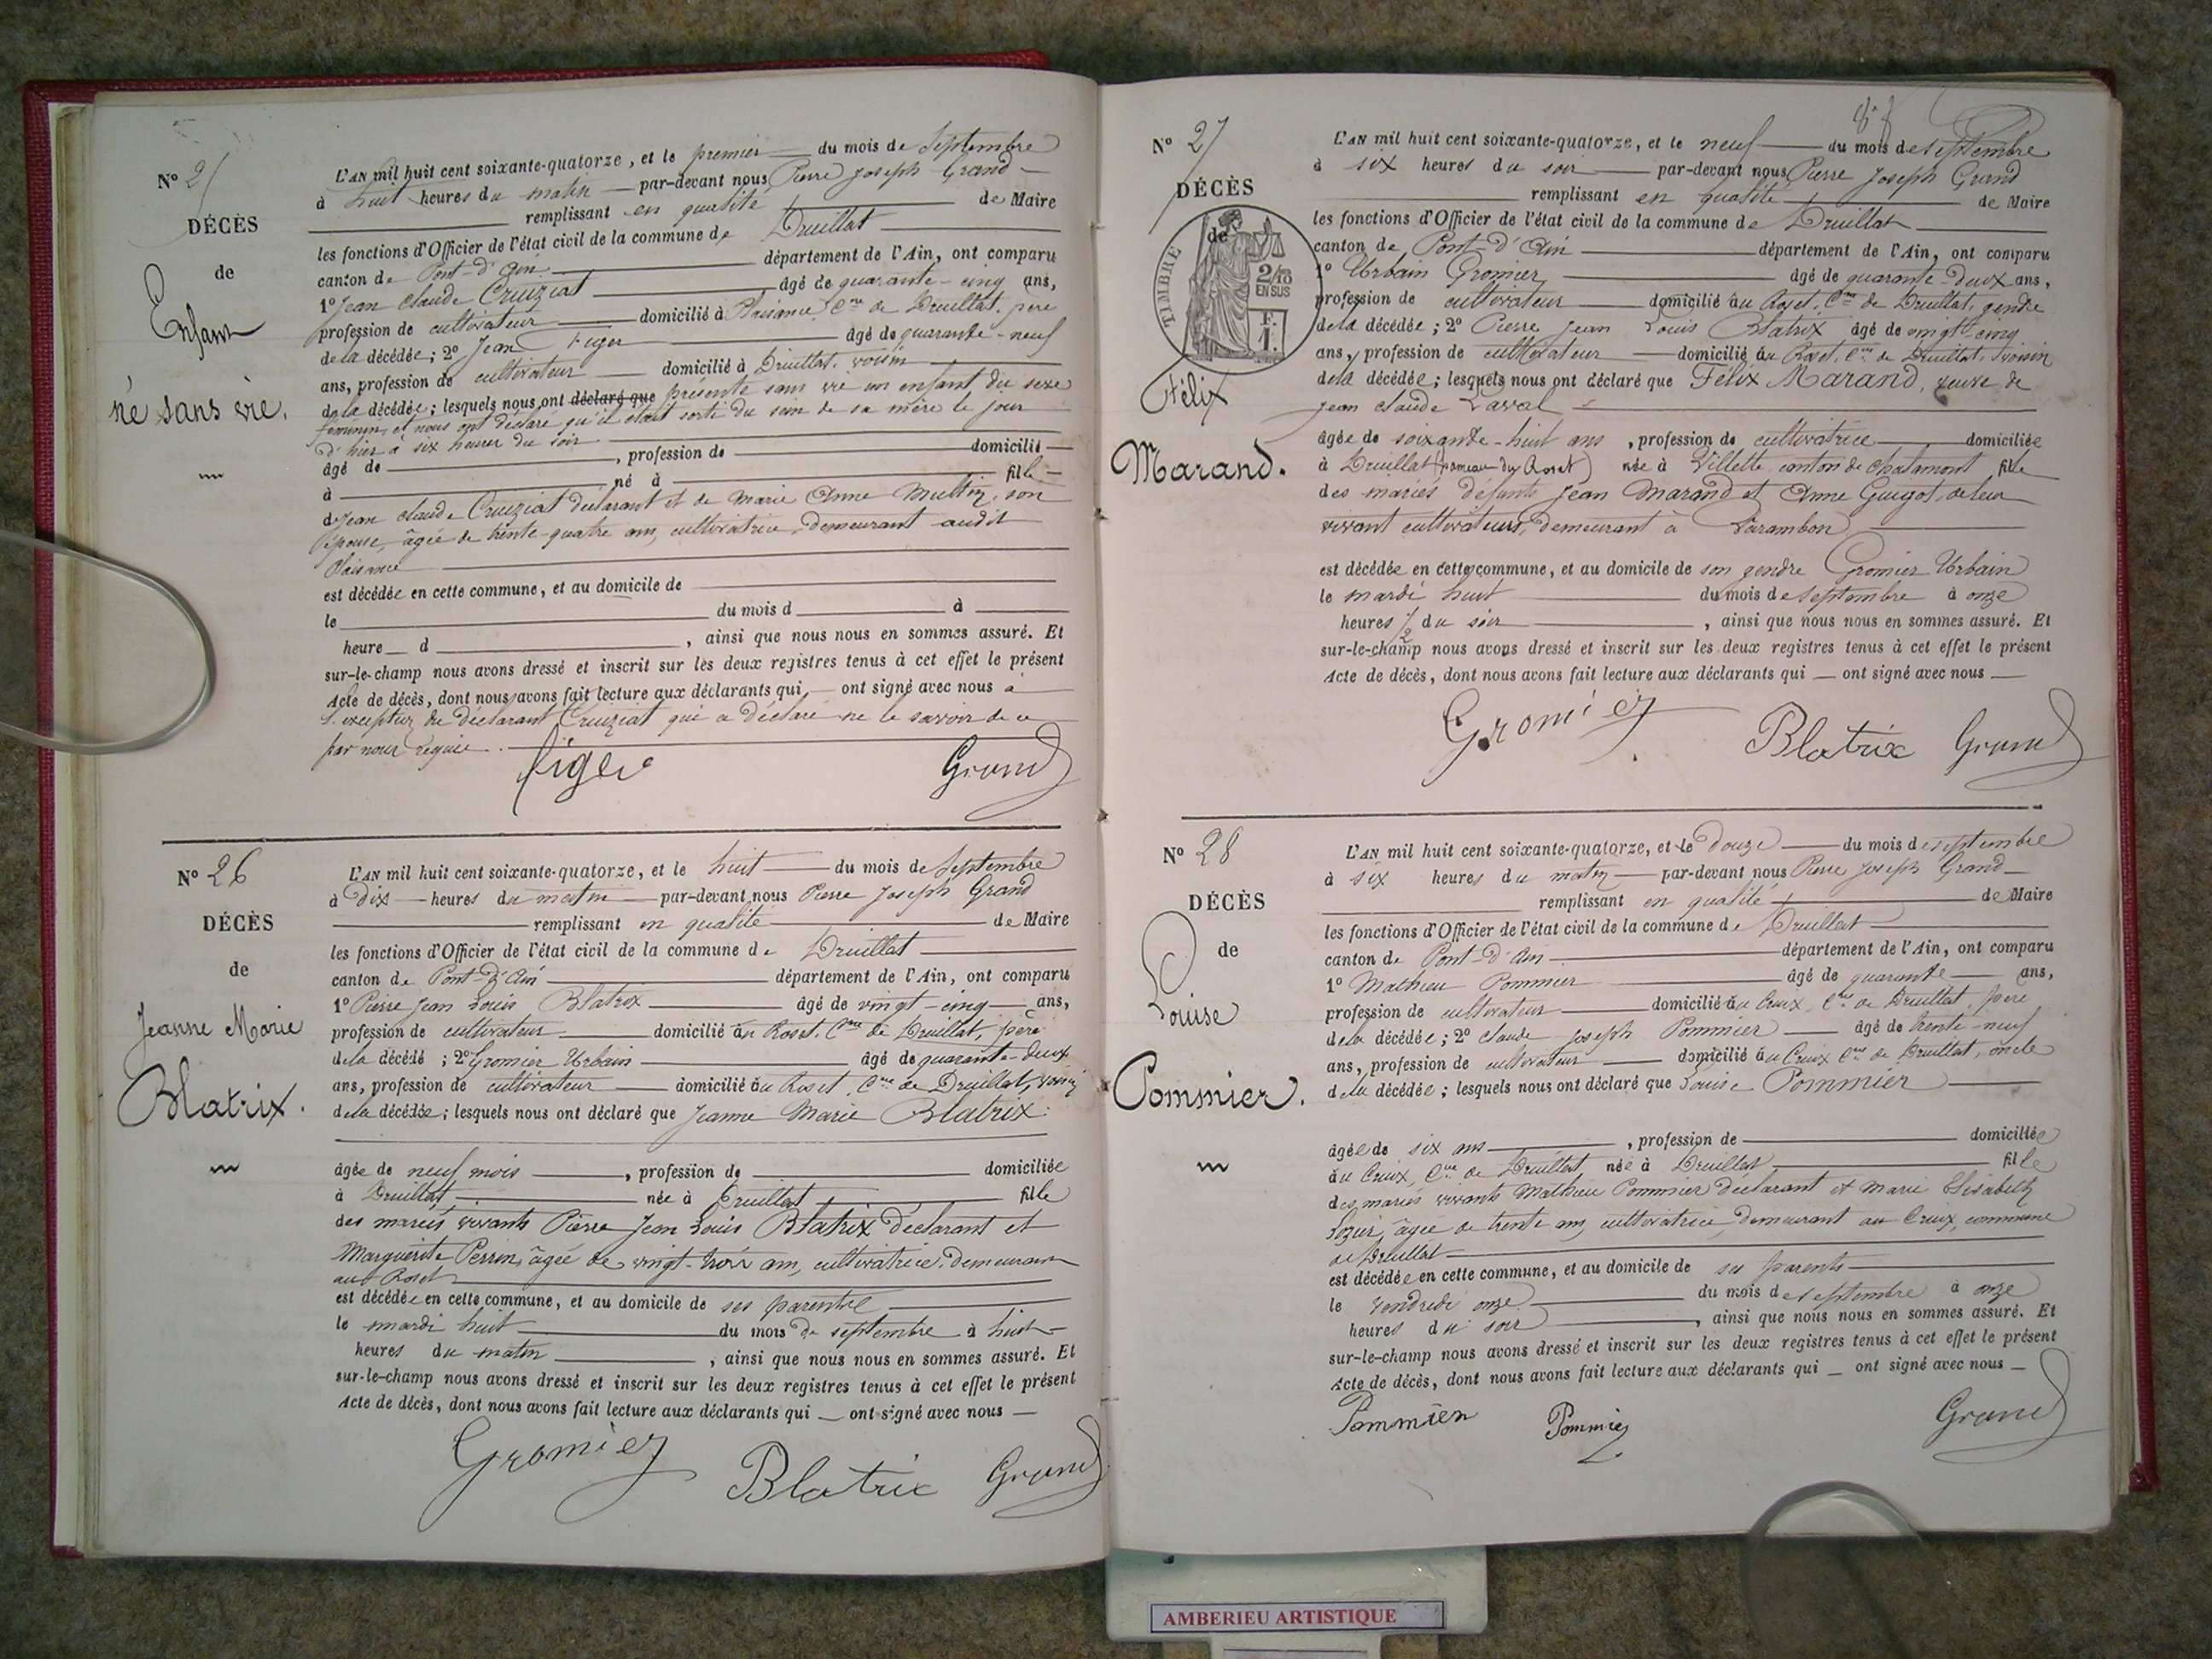 N° 25
DÉCÈS
de
Enfant
né sans vie.
L'AN mil huit cent soixante-quatorze, et le premier du mois de Septembre
à huit heures du matin par-devant nous Pierre Joseph Grand
remplissant en qualité de Maire
les fonctions d'Officier de l'état civil de la commune de Druillat
canton de Pont-d'Ain département de l'Ain, ont comparu
1° Jean Claude Cruiziat âgé de quarante-cinq ans,
profession de cultivateur domicilié à Plaisance Cne de Druillat, père
de la décédée; 2° Jean Figer âgé de quarante-neuf
ans, profession de cultivateur domicilié à Druillat, voisin
de la décédée; lesquels nous ont déclaré que présenté sans vie un enfant du sexe
féminin, et nous ont déclaré qu'il était sorti du sein de sa mère le jour
d'hier à six heures du soir
âgé de , profession de domicilié
à né à fille
de Jean Claude Cruiziat déclarant et de Marie Anne son
épouse, âgée de trente-quatre ans, cultivatrice, demeurant audit
Plaisance
est décédée en cette commune, et au domicile de
le du mois d à
heure d , ainsi que nous nous en sommes assuré. Et
sur-le-champ nous avons dressé et inscrit sur les deux registres tenus à cet effet le présent
Acte de décès, dont nous avons fait lecture aux déclarants qui ont signé avec nous à
l'exception du déclarant Cruiziat qui a déclaré ne le savoir de ce
par nous requis.
figer Grand
N° 26
DÉCÈS
de
Jeanne Marie
Blatrix.
L'AN mil huit cent soixante-quatorze, et le huit du mois de Septembre
à dix heures du matin par-devant nous Pierre Joseph Grand
remplissant en qualité de Maire
les fonctions d'Officier de l'état civil de la commune de Druillat
canton de Pont-d'Ain département de l'Ain, ont comparu
1° Pierre Jean Louis Blatrix âgé de vingt-cinq ans,
profession de cultivateur domicilié au Roset, Cne de Druillat, père
de la décédé; 2° Gromier Urbain âgé de quarante-deux
ans, profession de cultivateur domicilié au Roset, Cne de Druillat, voisin
de la décédée; lesquels nous ont déclaré que Jeanne Marie Blatrix
âgée de neuf mois , profession de domiciliée
à Druillat née à Druillat fille
des mariés vivants Pierre Jean Louis Blatrix déclarant et
Marguerite Perrin, âgée de vingt-trois ans, cultivatrice, demeurant
au Roset
est décédée en cette commune, et au domicile de ses parents
le mardi huit du mois de septembre à huit
heures du matin , ainsi que nous nous en sommes assuré. Et
sur-le-champ nous avons dressé et inscrit sur les deux registres tenus à cet effet le présent
Acte de décès, dont nous avons fait lecture aux déclarants qui ont signé avec nous
Gromier Blatrix Grand
N° 27
DÉCÈS
de
TIMBRE
2/10
EN SUS
F.
1.
Félix
Marand.
L'AN mil huit cent soixante-quatorze, et le neuf du mois de septembre
à six heures du soir par-devant nous Pierre Joseph Grand
remplissant en qualité de Maire
les fonctions d'Officier de l'état civil de la commune de Druillat
canton de Pont-d'Ain département de l'Ain, ont comparu
1° Urbain Gromier âgé de quarante-deux ans,
profession de cultivateur domicilié au Roset, Cne de Druillat, gendre
de la décédée; 2° Pierre Jean Louis Blatrix âgé de vingt-cinq
ans, profession de cultivateur domicilié au Roset, Cne de Druillat, voisin
de la décédée; lesquels nous ont déclaré que Félix Marand, veuve de
Jean Claude Laval
âgée de soixante-huit ans , profession de cultivatrice domiciliée
à Druillat (hameau du Roset) née à Villette canton de Chalamont, fille
des mariés défunts Jean Marand et Anne Guigot, de leur
vivant cultivateurs, demeurant à Varambon
est décédée en cette commune, et au domicile de son gendre Gromier Urbain
le mardi huit du mois de septembre à onze
heures 1/2 du soir , ainsi que nous nous en sommes assuré. Et
sur-le-champ nous avons dressé et inscrit sur les deux registres tenus à cet effet le présent
Acte de décès, dont nous avons fait lecture aux déclarants qui ont signé avec nous
Gromier Blatrix Grand
N° 28
DÉCÈS
de
Louise
Pommier.
L'AN mil huit cent soixante-quatorze, et le douze du mois de septembre
à six heures du matin par-devant nous Pierre Joseph Grand
remplissant en qualité de Maire
les fonctions d'Officier de l'état civil de la commune de Druillat
canton de Pont-d'Ain département de l'Ain, ont comparu
1° Mathieu Pommier âgé de quarante ans,
profession de cultivateur domicilié au Cruix, Cne de Druillat, père
de la décédée; 2° Claude Joseph Pommier âgé de trente-neuf
ans, profession de cultivateur domicilié au Cruix Cne de Druillat, oncle
de la décédée; lesquels nous ont déclaré que Louise Pommier
âgée de six ans , profession de domiciliée
au Cruix, Cne de Druillat, née à Druillat fille
des mariés vivants Mathieu Pommier déclarant et Marie Elisabeth
âgée de trente ans, cultivatrice, demeurant au Cruix, commune
de Druillat
est décédée en cette commune, et au domicile de ses parents
le vendredi onze du mois de septembre à onze
heures du soir , ainsi que nous nous en sommes assuré. Et
sur-le-champ nous avons dressé et inscrit sur les deux registres tenus à cet effet le présent
Acte de décès, dont nous avons fait lecture aux déclarants qui ont signé avec nous
Pommier Pommier Grand
AMBERIEU ARTISTIQUE